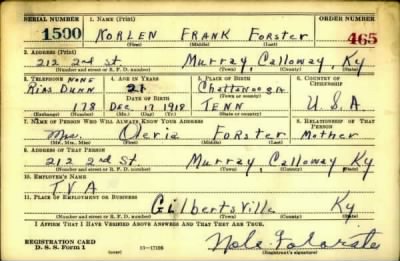 SERIAL NUMBER 1. NAME (Print) ORDER NUMBER
1500 NORLEN FRANK FORSTER 465
(First) (Middle) (Last)
2. ADDRESS (Print)
212 2nd St. Murray, Calloway, Ky
(Number and street or R. F. D. number) (Town) (County) (State)
3. TELEPHONE NONE 4. AGE IN YEARS 5. PLACE OF BIRTH 6. COUNTRY OF CITIZENSHIP
Rias Dunn 21 Chattanooga
DATE OF BIRTH (Town or county)
178 Dec. 17 1918 TENN U.S.A.
(Exchange) (Number) (Mo.) (Day) (Yr.) (State or country)
7. NAME OF PERSON WHO WILL ALWAYS KNOW YOUR ADDRESS 8. RELATIONSHIP OF THAT PERSON
Mrs. Forster Mother
(Mr., Mrs., Miss) (First) (Middle) (Last)
9. ADDRESS OF THAT PERSON
212 2nd St. Murray, Calloway Ky
(Number and street or R. F. D. number) (Town) (County) (State)
10. EMPLOYER'S NAME
T.V.A
11. PLACE OF EMPLOYMENT OR BUSINESS
Gilbertsville Ky
(Number and street or R. F. D. number) (Town) (County) (State)
I AFFIRM THAT I HAVE VERIFIED ABOVE ANSWERS AND THAT THEY ARE TRUE.
REGISTRATION CARD
D. S. S. Form 1
(Registrant's signature)